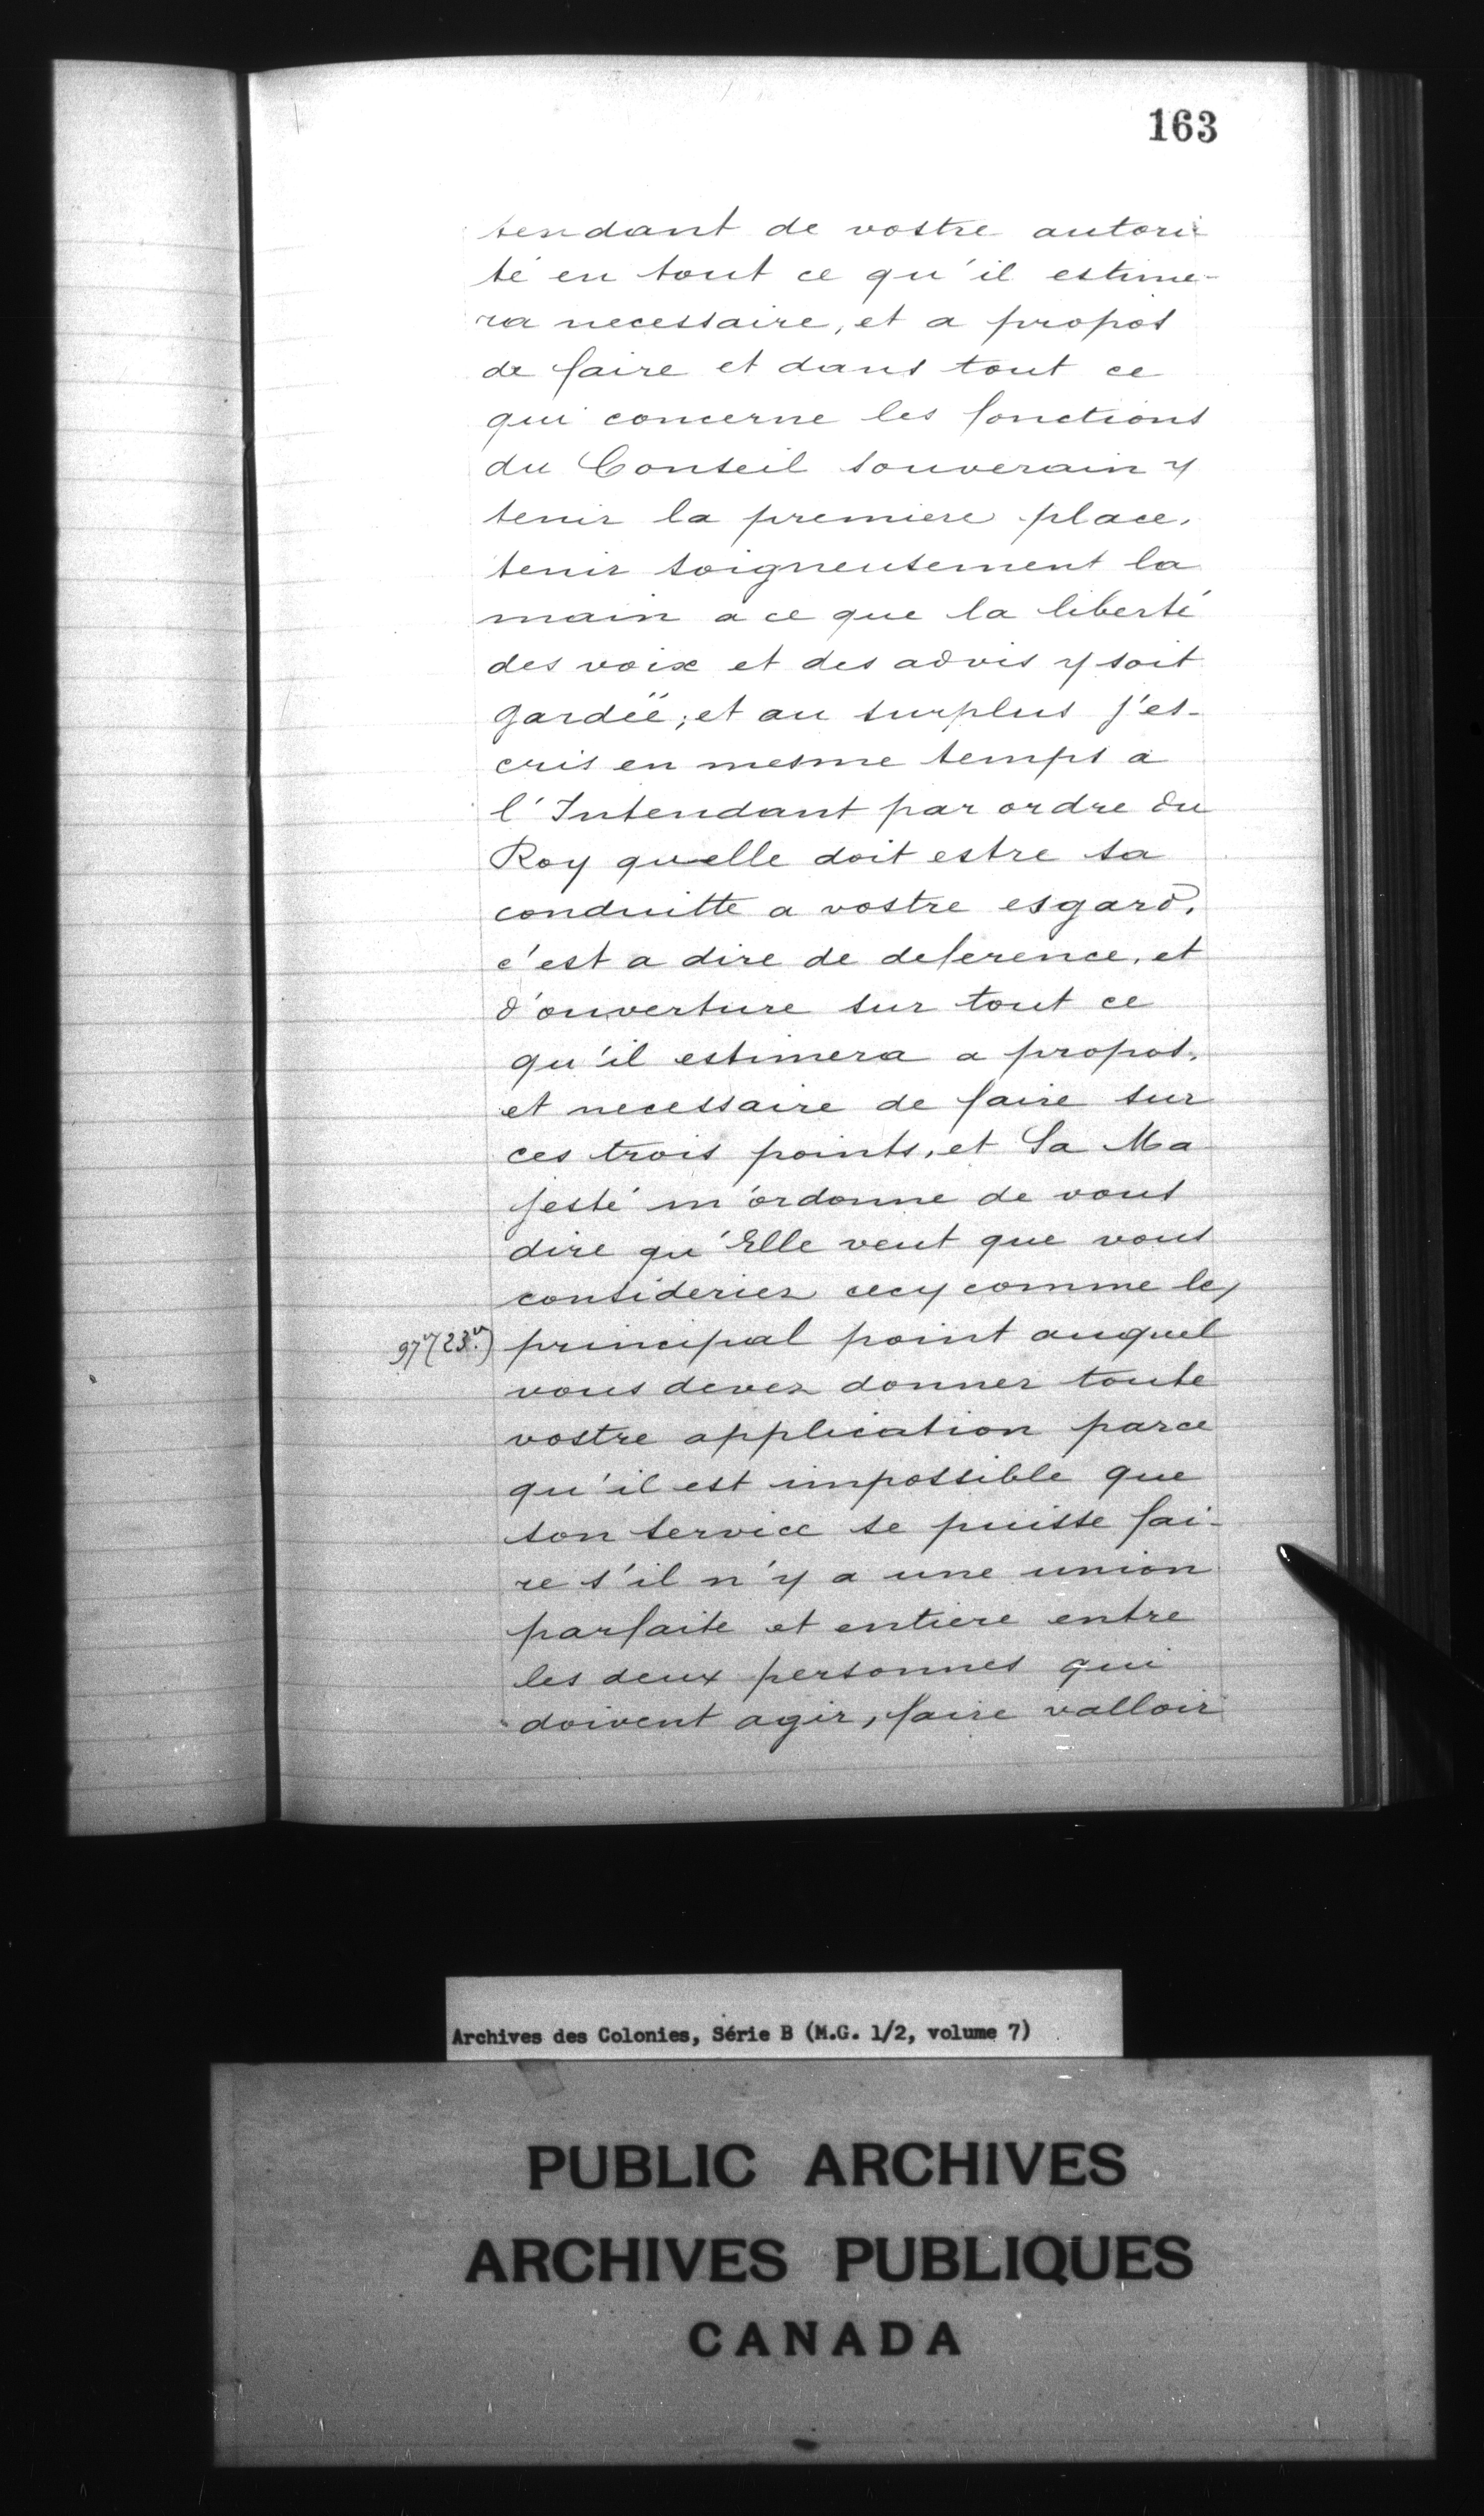 163
tendant de vostre autori
té en tout ce qu'il estime-
ra necessaire, et a propos
de faire et dans tout ce
qui concerne les fonctions
du Conseil souverain y
tenir la premiere place,
tenir soigneusement la
main a ce que la liberté
des voix et des advis y soit
gardëe; et au surplus j'es-
cris en mesme temps a
l'Intendant par ordre du
Roy quelle doit estre sa
conduitte a vostre esgard,
c'est a dire de deference, et
d'ouverture sur tout ce
qu'il estimera a propos,
et necessaire de faire sur
ces trois points, et Sa Ma
jesté m'ordonne de vous
dire qu'Elle veut que vous
consideriez cecy comme le
97v (23v) principal point auquel
vous devez donner toute
vostre application parce
qu'il est impossible que
son service se puisse fai-
re s'il n'y a une union
parfaite et entiere entre
les deux personnes qui
doivent agir, faire valloir
Archives des Colonies, Série B (M.G. 1/2, volume 7)
PUBLIC ARCHIVES
ARCHIVES PUBLIQUES
CANADA